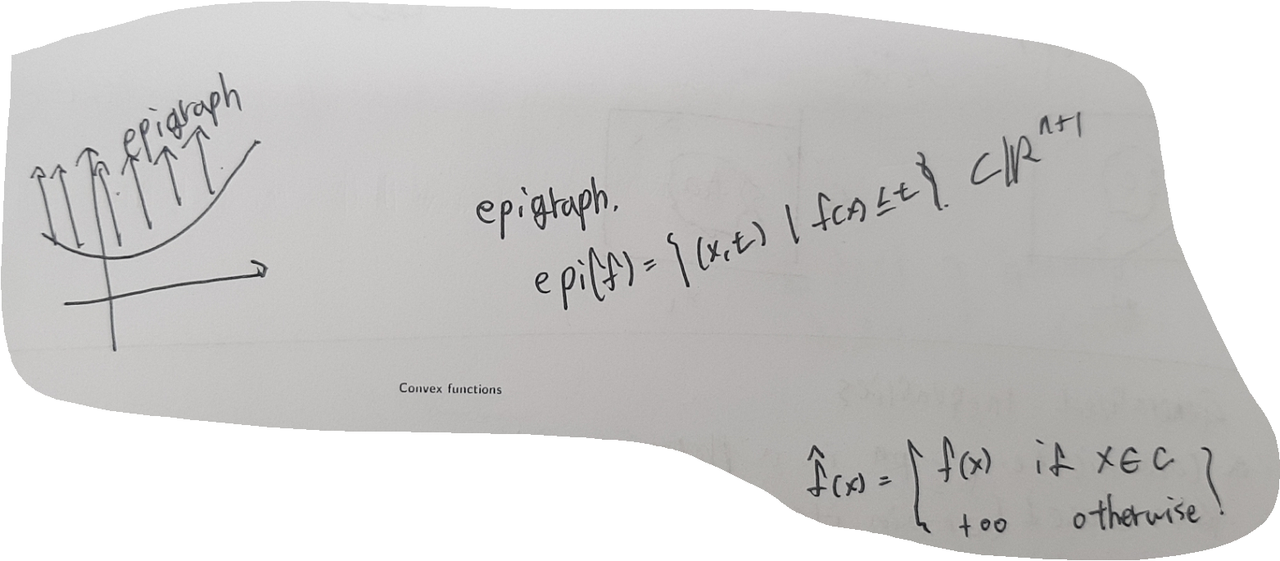 epigraph
epigraph.
epi(f) = {(x,t) | f(x) ≤ t} ⊂ ℝⁿ⁺¹
Convex functions
f̂(x) = { f(x) if x ∈ C
+∞ otherwise }